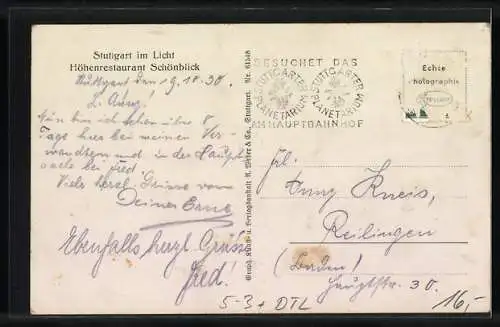 Stuttgart im Licht
Höhenrestaurant Schönblick
Stuttgart den 19.10.30.
L. Anny!
Bin nun schon über 8
Tage hier bei meinen Ver-
wandten und in der Haupt-
sache bei Fred
Viele herzl. Grüsse von
Deiner
Ebenfalls herzl. Grüsse
Fred!
Graph. Kunst- u. Verlagsanstalt R. Weber & Co., Stuttgart. Nr. 81548
BESUCHET DAS
STUTTGARTER PLANETARIUM
STUTTGARTER PLANETARIUM
AM HAUPTBAHNHOF
Echte
Photographie
Frl.
Anny Kneis,
Reilingen
(Baden)
Hauptstr. 30.
5-3+ DTL
16,-